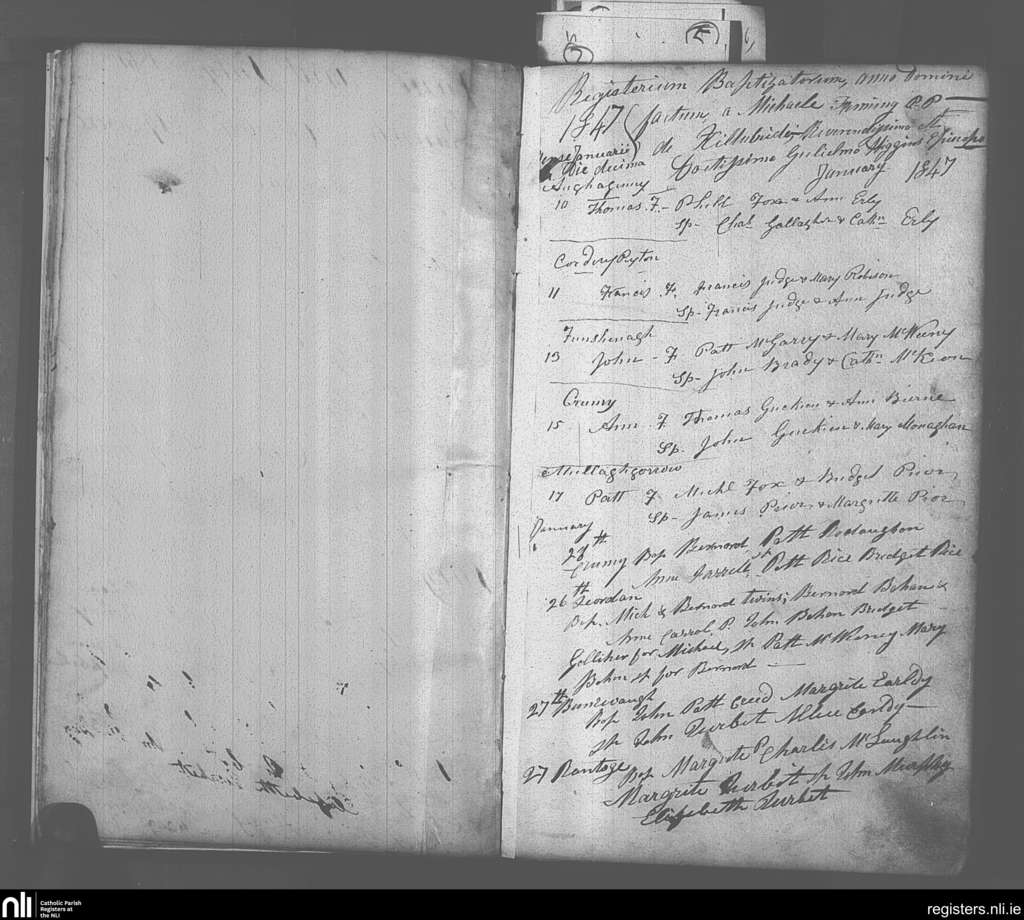 Registerium Baptizatorum, anno Domini
1847 (factum, a Michaele Fleming P.P
mense Januarii) de Killubride Reverendissimo et
Die decima Doctissimo Gulielmo Higgins Episcopo
January 1847
Aughagunny
10 Thomas. F. - Philp Fox & Ann Erly
Sp- Chas Gallagher & Cathn Erly
Corderry Peyton
11 Francis. F. Francis Judge & Mary Robison
Sp- Francis Judge & Ann Judge
Funshinagh
13 John - F Patt McGarvy & Mary McKeeny
Sp- John Brady & Cathn McKeon
Crumy
15 Ann - F Thomas Guckien & Ann Bierne
Sp. John Guckien & Mary Monaghan
Mullaghgorrow
17 Patt F Michl Fox & Bridget Prior
Sp- James Prior & Margritte Prior
January
23th
Crumy Bap Bernord Patt
Anne sp Patt Rice Bredget Rice
26th Geordan
Bap. Mich & Bernord twins; Bernord Bohan &
Anne Carrol. P. John Bohan Bredget
Golliher for Michael, sp Patt McKerney Mary
Bohn sp for Bernord
27th Bunrevaugh
Bap John Patt Creed Margrite Earldy
sp John Turbet Allice Candy
27 Rantoge Bap Margrete P Charlis McLaughlin
Margrite Turbet sp John Murphy
Elizebeth Turbet
nli
Catholic Parish
Registers at
the NLI
registers.nli.ie